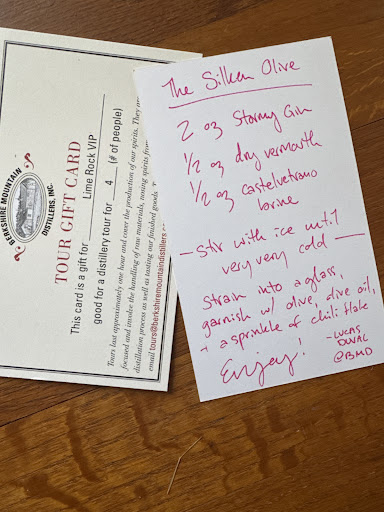 BERKSHIRE MOUNTAIN
DISTILLERS, INC.
TOUR GIFT CARD
This card is a gift for Lime Rock VIP
good for a distillery tour for 4 (# of people)
Tours last approximately one hour and cover the production of our spirits. They are
focused and involve the handling of raw materials, nosing spirits from
distillation process as well as tasting our finished goods.
email tours@berkshiremountaindistillers
The Silken Olive
2 oz Stormy Gin
1/2 oz dry vermouth
1/2 oz castelvetrano
brine
- Stir with ice until
very very cold -
Strain into a glass,
garnish w/ olive, olive oil,
+ a sprinkle of chili flake
Enjoy!
- LUCAS
DUVAL
@BMD